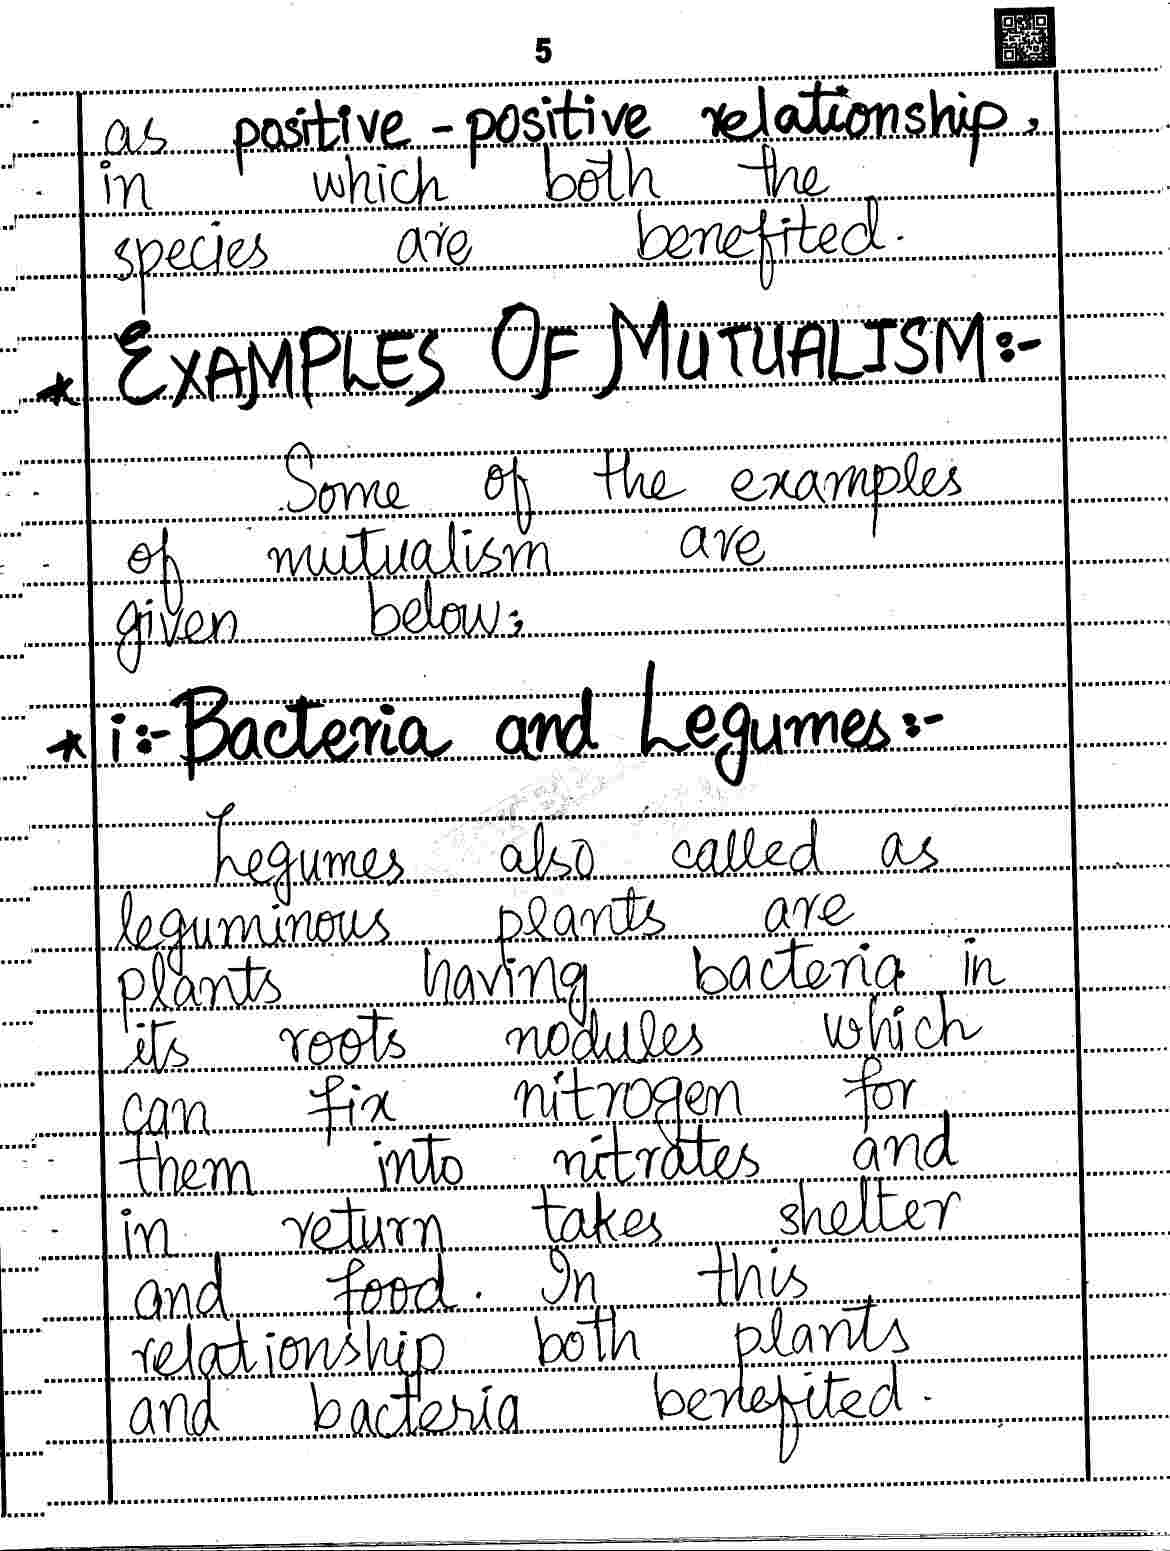 5
as positive-positive relationship,
in which both the
species are benefited.
* EXAMPLES OF MUTUALISM:-
Some of the examples
of mutualism are
given below;
* i:- Bacteria and Legumes:-
Legumes also called as
leguminous plants are
plants having bacteria in
its roots nodules which
can fix nitrogen for
them into nitrates and
in return takes shelter
and food. In this
relationship both plants
and bacteria benefited.